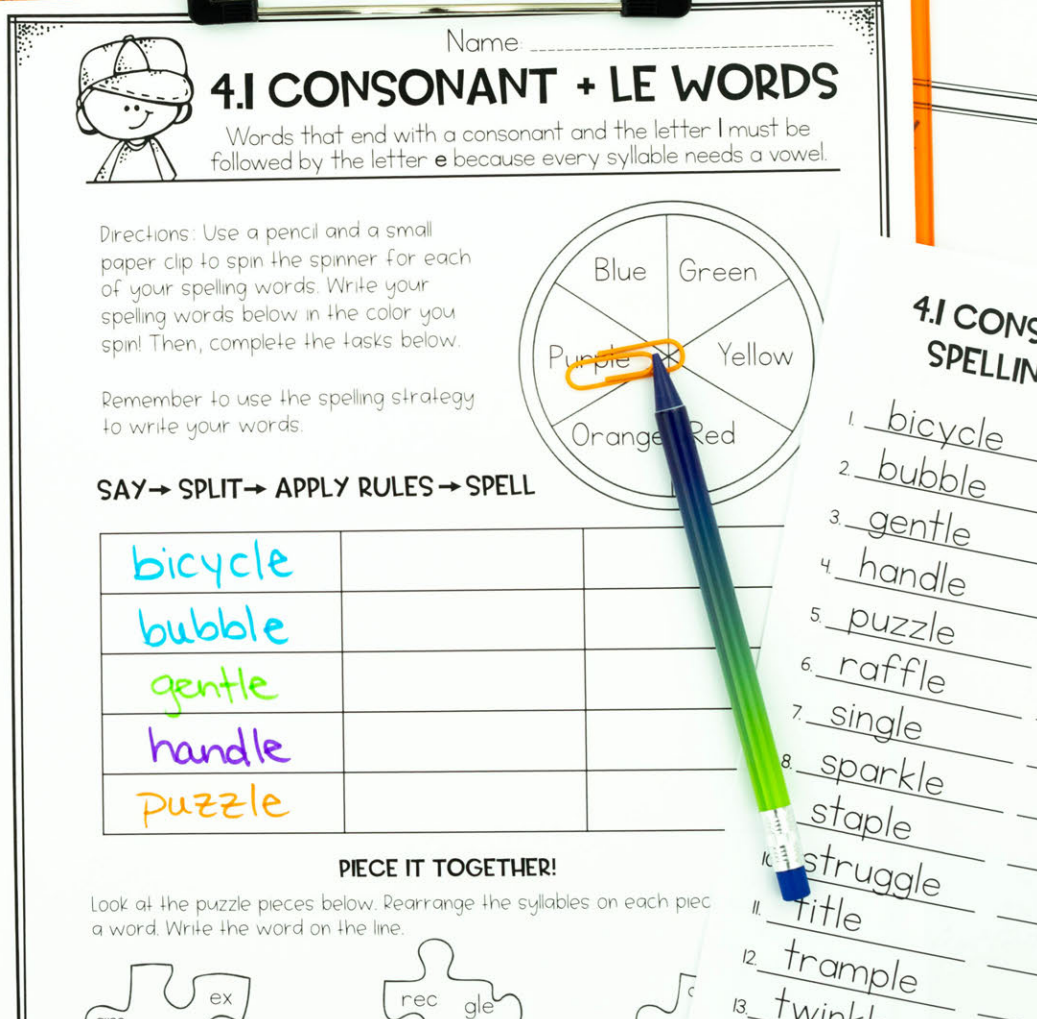 Name:
4.1 CONSONANT + LE WORDS
Words that end with a consonant and the letter l must be
followed by the letter e because every syllable needs a vowel.
Directions: Use a pencil and a small
paper clip to spin the spinner for each
of your spelling words. Write your
spelling words below in the color you
spin! Then, complete the tasks below.
Remember to use the spelling strategy
to write your words.
SAY→ SPLIT→ APPLY RULES→SPELL
Blue
Green
Purple
Yellow
Orange
Red
bicycle
bubble
gentle
handle
puzzle
PIECE IT TOGETHER!
Look at the puzzle pieces below. Rearrange the syllables on each
a word. Write the word on the line.
ex
rec gle
4.1
1. bicycle
2. bubble
3. gentle
4. handle
5. puzzle
6. raffle
7. single
8. sparkle
staple
struggle
11. title
12. trample
13.